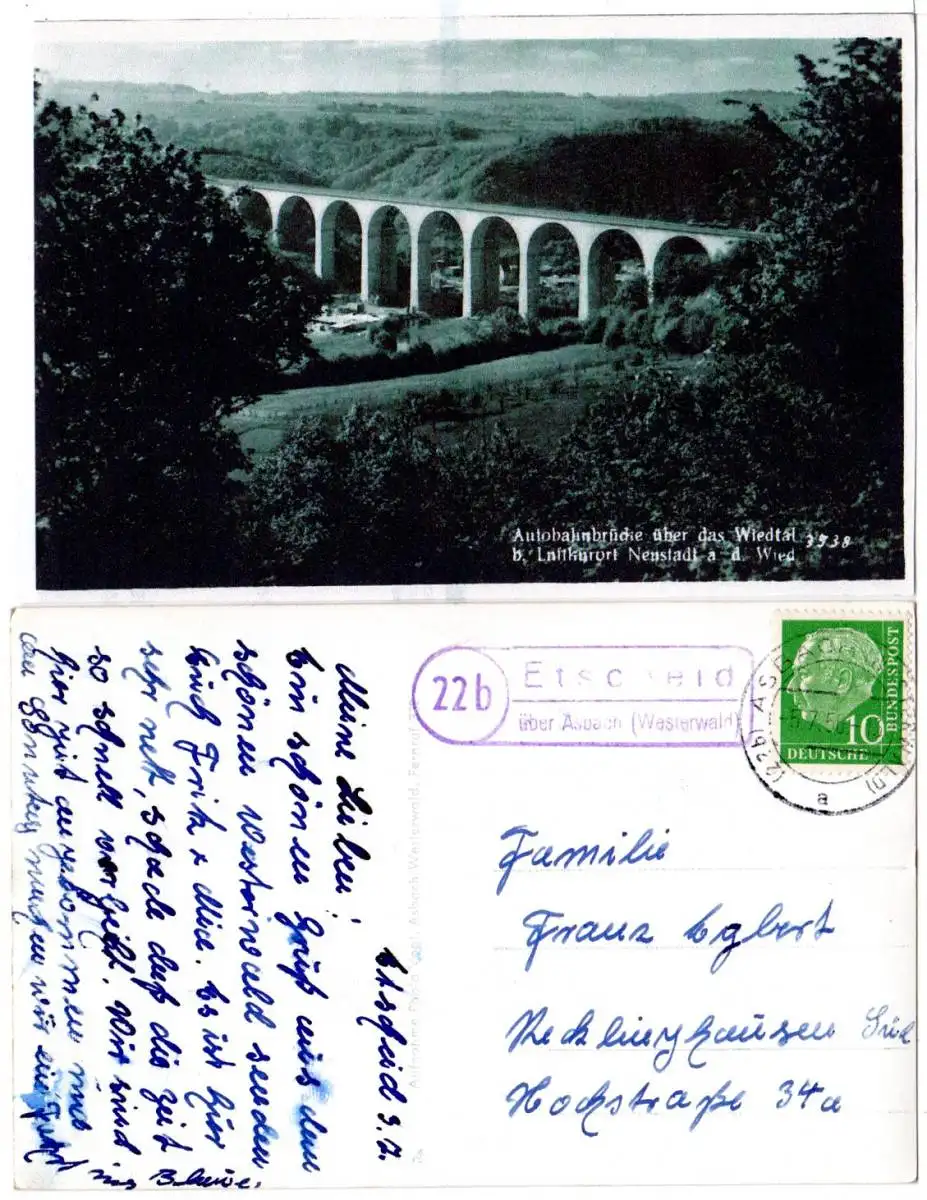 Autobahnbrücke über das Wiedtal 3938
b. Luftkurort Neustadt a d. Wied
22b
Etscheid
über Asbach (Westerwald)
ASBACH
(22b)
-5.7.56
a
10
DEUTSCHE
BUNDESPOST
Familie
Franz Egbert
Recklinghausen Süd
Hochstraße 34a
Aufnahme Photo Asbach Westerwald, Fernruf
Etscheid 3.7.
Meine Lieben!
Ein schönen Gruß aus dem
schönen Westerwald senden
Euch Fritz & Mia. Es ist hier
sehr nett, schade daß die Zeit
so schnell vergeht. Wir sind
hier gut angekommen und
am Sonntag machen wir eine Fahrt
ins Blaue.